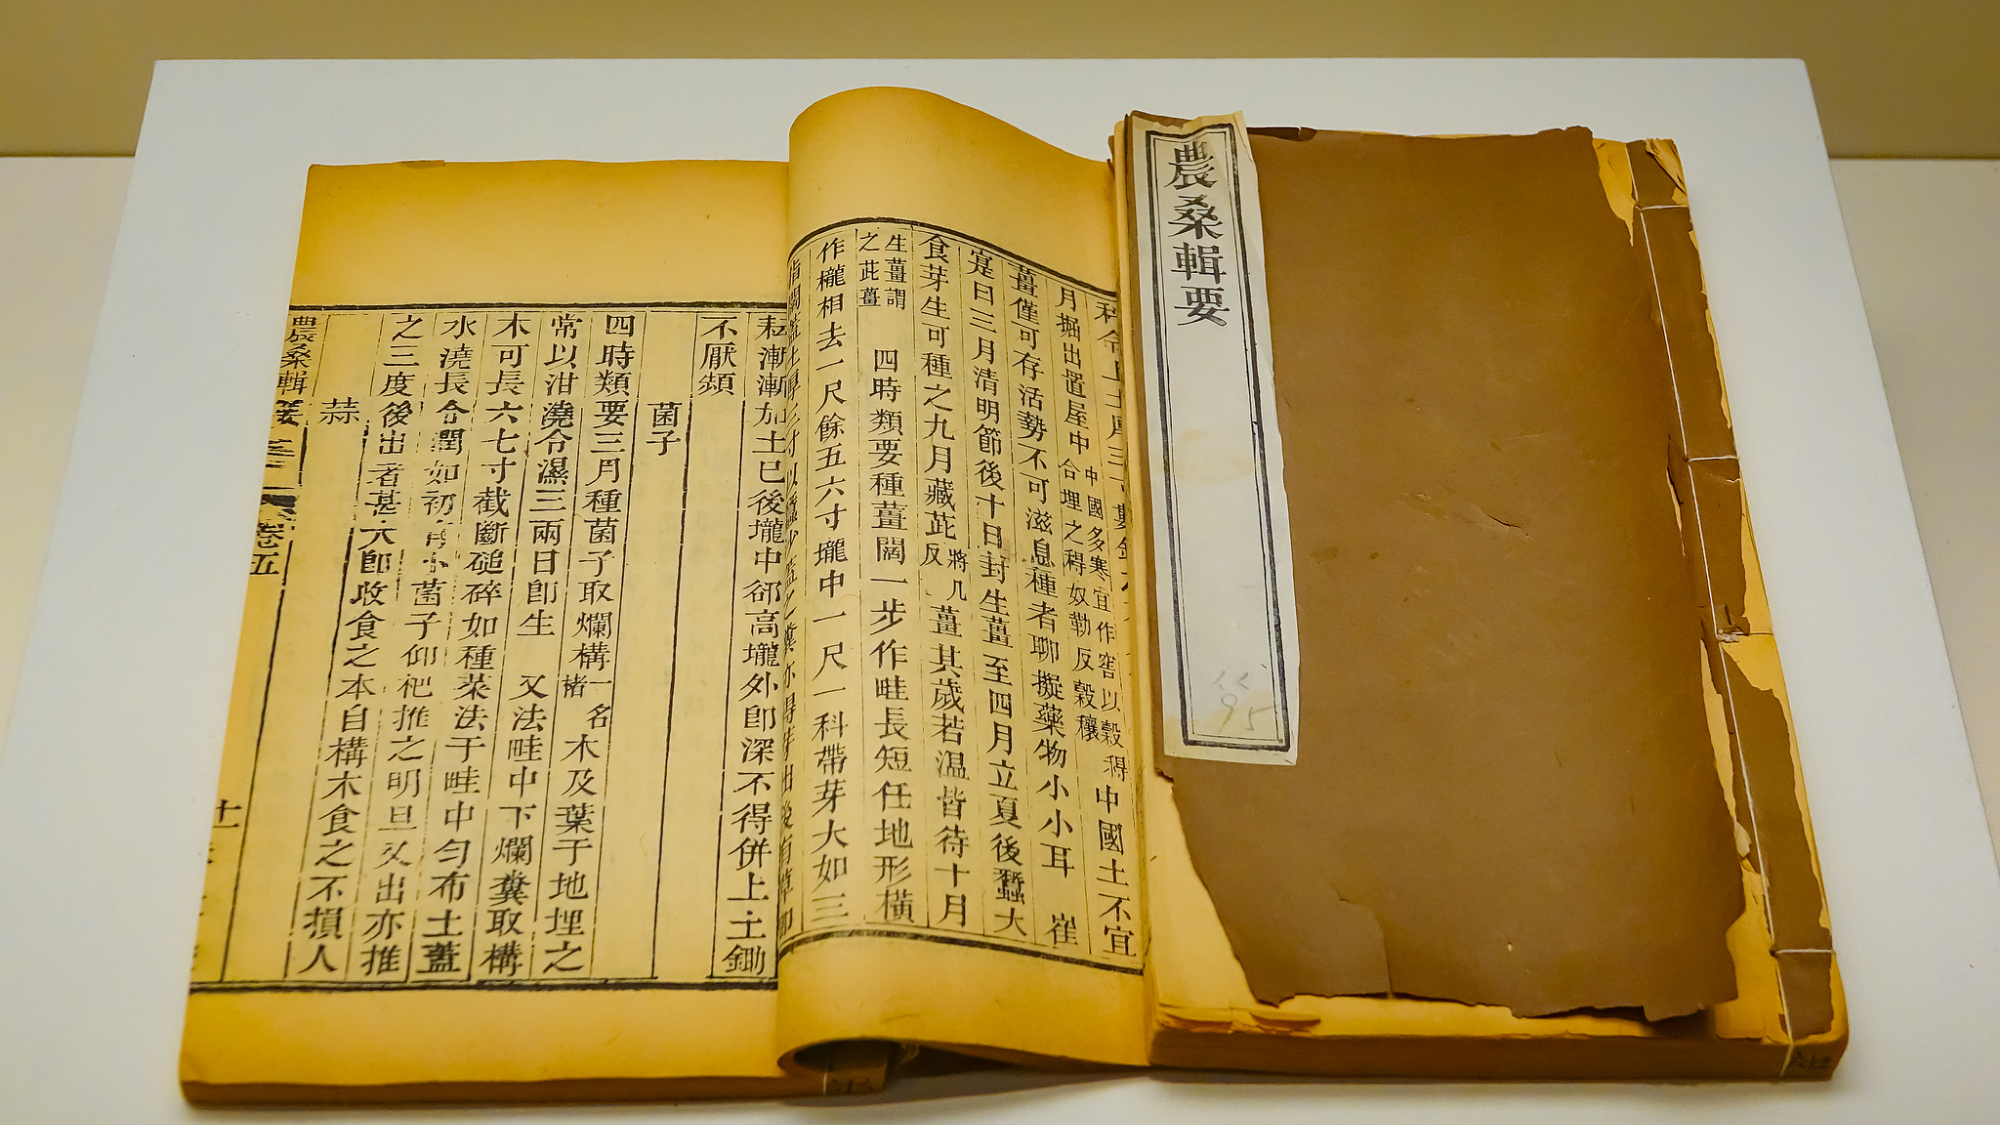 農桑輯要
宜作窖以穀得中國土不宜
月掘出置屋中中國多寒
合埋之穄奴勒反穀穰
薑僅可存活勢不可滋息種者聊擬藥物小小耳 崔
寔曰三月清明節後十日封生薑至四月立夏後蠶大
食芽生可種之九月藏茈將几
反薑其歲若温皆待十月
生薑謂
之茈薑 四時類要種薑闊一步作畦長短任地形橫
作櫳相去一尺餘五六寸壠中一尺一科帶芽大如三
耘漸漸加土已後壠中郤高壠外卽深不得併上土鋤
不厭頻
菌子
四時類要三月種菌子取爛構一名
楮木及葉于地埋之
常以泔澆令濕三兩日卽生 又法畦中下爛糞取構
木可長六七寸截斷磓碎如種菜法于畦中匀布土蓋
水澆長令潤如初有小菌子仰杷推之明旦又出亦推
之三度後出者甚大卽收食之本自構木食之不損人
蒜
農桑輯要
卷五
十一